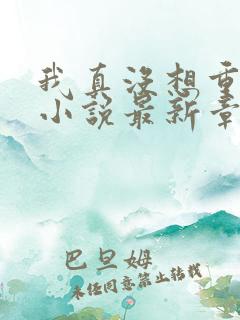 我真没想重
小说最新章
巴旦姆
未经同意禁止转载